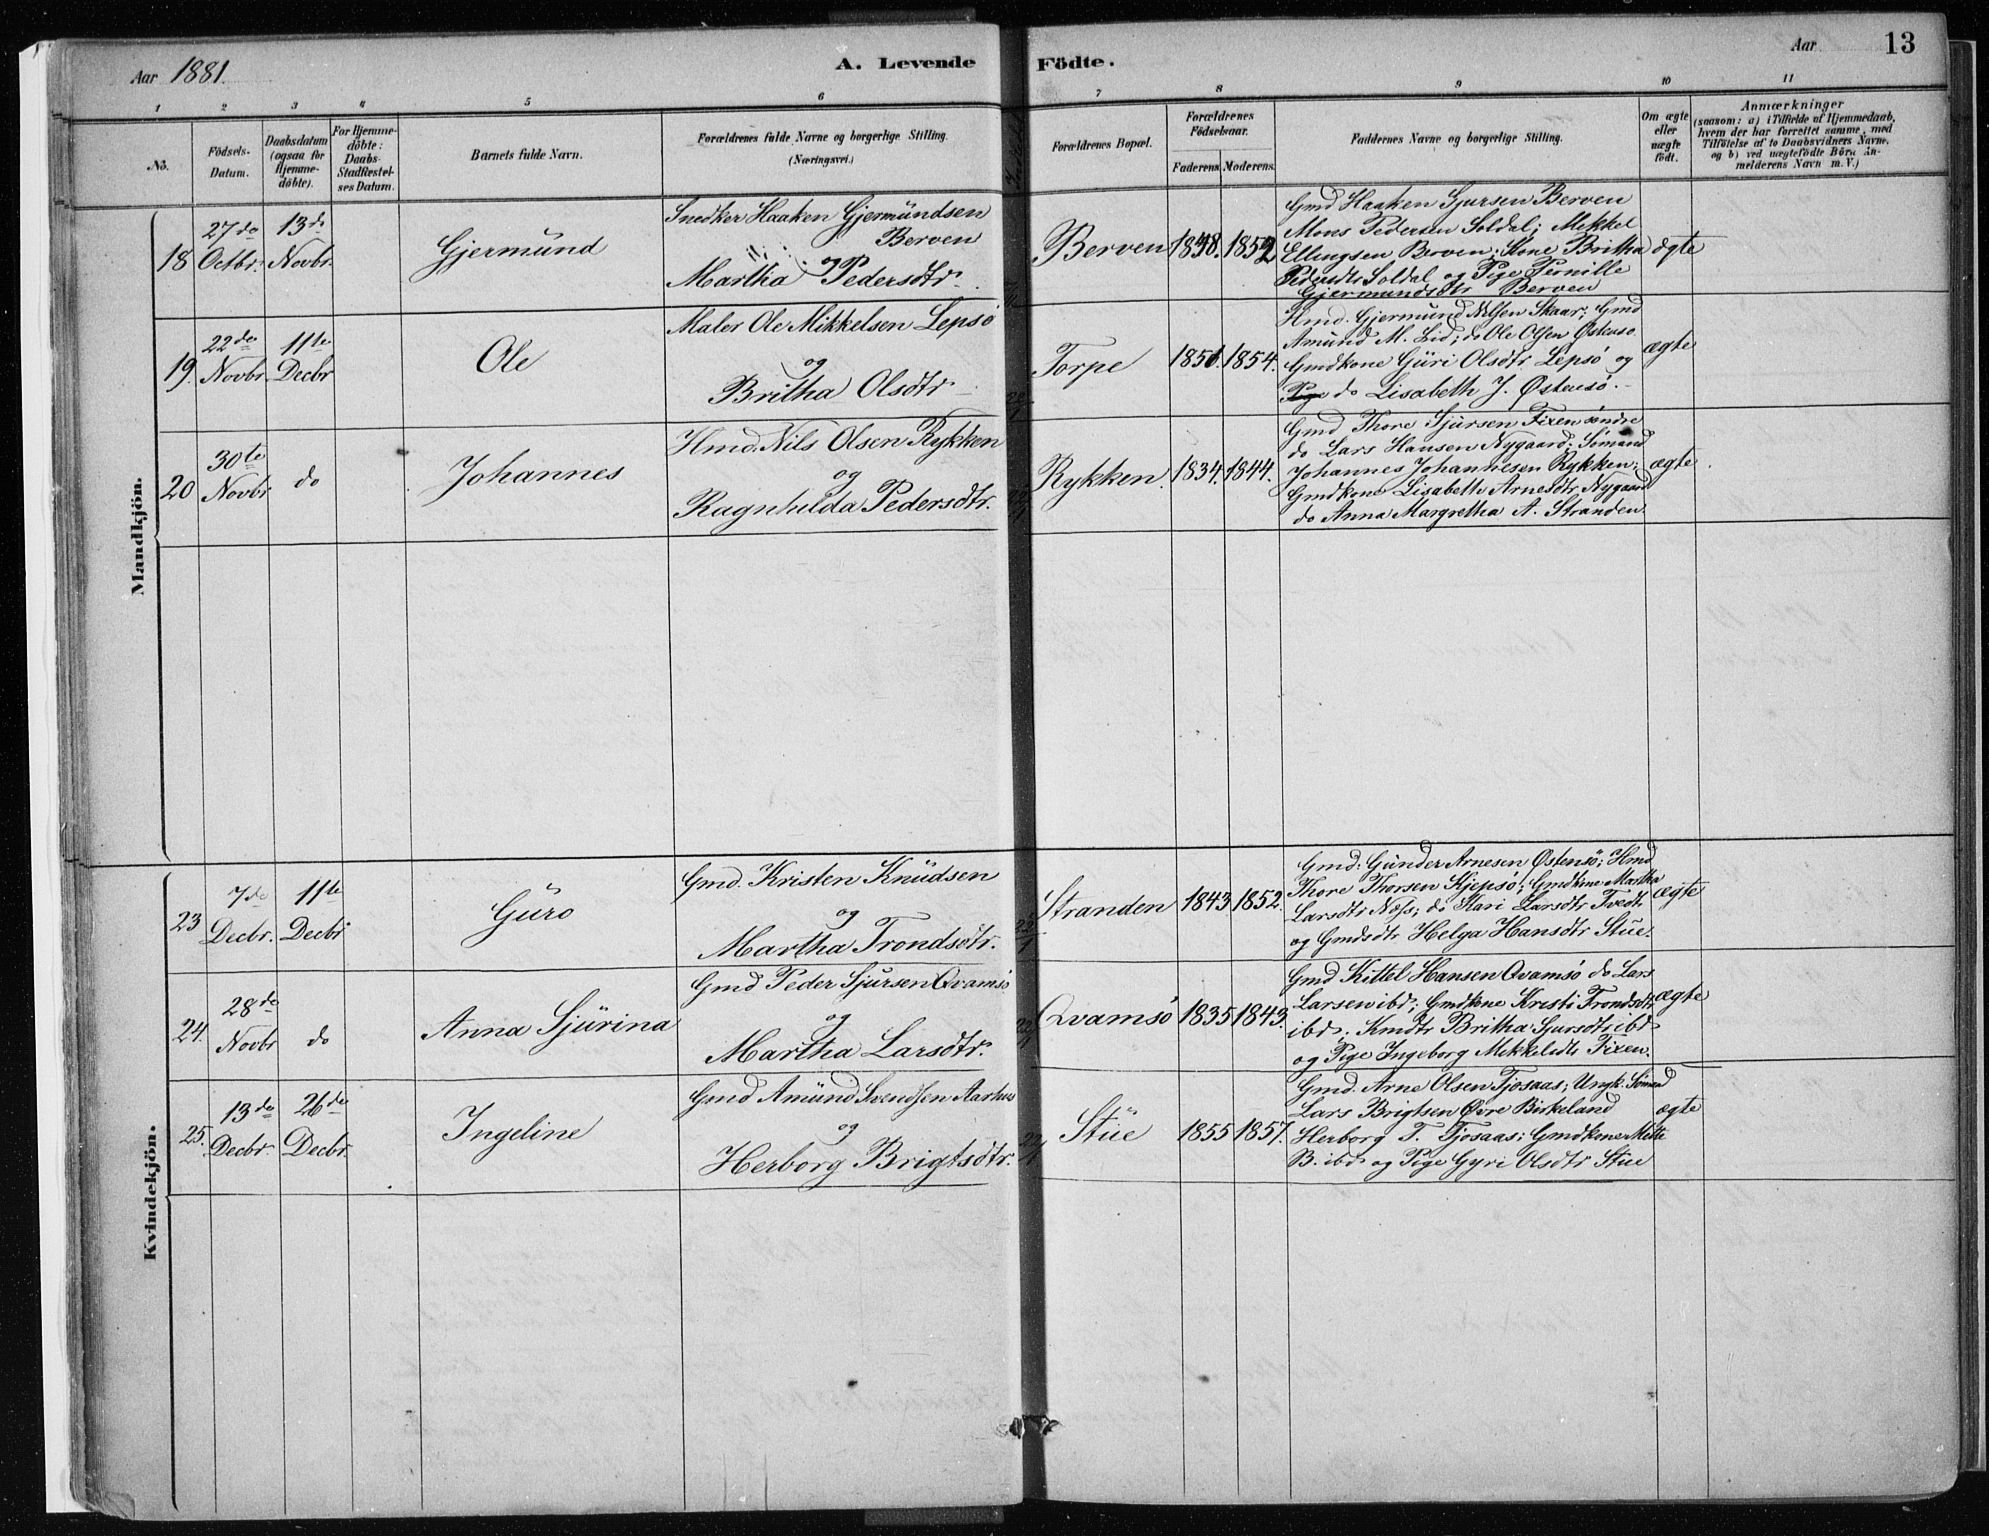 Aar 1881.
A. Levende Födte.
Aar
13
1
2
3
4
5
6
7
8
9
10
11
No.
Födsels-
Datum.
Daabsdatum
(ogsaa for
Hjemme-
döbte).
For Hjemme-
döbte:
Daabs-
Stadfæstel-
ses Datum.
Barnets fulde Navn.
Forældrenes fulde Navne og borgerlige Stilling.
(Næringsvei.)
Forældrenes Bopæl.
Forældrenes
Födselsaar.
Faderens. Moderens.
Faddernes Navne og borgerlige Stilling.
Om ægte
eller
uægte
födt.
Anmærkninger
(saasom: a) i Tilfælde af Hjemmedaab,
hvem der har forrettet samme, med
Tilföielse af to Daabsvidners Navne,
og b) ved uægtefödte Börn An-
melderens Navn m. V.)
Mandkjön.
18
27de
Octbr.
13de
Novbr.
Gjermünd
Snedker Haaken Gjermündsen
Berven
og
Martha Pedersdtr.
Berven
1848.
1852
Gmd Haaken Gjursen Berven
Mons Pedersen Soldal; Mikkel
Ellingsen Berven; Kone Britha
Pedersdtr Soldal og Pige Pernille
Gjermundsdtr Berven
ægte
19.
22de
Novbr.
11te
Decbr
Ole
Maler Ole Mikkelsen Lepsö
og
Britha Olsdtr
Torpe
1854.
Hmd. Gjermund Nilsen Skaar; Gmd
Amund M. Lid; do Ole Olsen Østensö
Gmdkone Güri Olsdtr Lepsö og
Pige do Lisabeth J. Østensö.
ægte
20
30te
Novbr
do
Johannes
Hmd. Nils Olsen Rykken
og
Ragnhilda Pedersdtr.
Rykken.
1834.
1844.
Gmd Thore Sjürsen Fixensöndre
do Lars Hansen Nygaard; Sömand
Johannes Johannesen Rykken;
Gmdkone Lisabeth Arnesdtr Nygaard
do Anna Margretha A. Stranden.
ægte
Kvindekjön.
23
7de
Decbr.
11te
Decbr
Güro
Gmd. Kristen Knüdsen
og
Martha Trondsdtr.
Stranden
1843
1852.
Gmd. Günder Arnesen Østensö; Hmd
Thore Thorsen Kjepsö; Gmdkone Martha
Larsdtr Næss; do Mari Larsdtr Tvedt
og Gmdsdtr Helga Hansdtr Stue.
ægte
24.
28de
Novbr
do
Anna Sjürina
Gmd Peder Sjürsen Qvamsö
og
Martha Larsdtr.
Qvamsö
1835
1843.
Gmd Kittel Hansen Qvamsö do Lars
Larsen ibd; Gmdkone Kristi Trondsdtr
ibd. Kmdtr Britha Sjursdtr ibd
og Pige Ingeborg Mikkelsdtr Fixen.
ægte
25.
13de
Decbr.
26de
Decbr.
Ingeline
Gmd Amünd Svendsen Aarhus
og
Herborg Brigtsdtr.
Stüe
1855
1857.
Gmd. Arne Olsen Tjosaas; Ungk. Sömand
Lars Brigtsen Øvre Birkeland
Herborg T. Tjosaas; Gmdkone Mette
B. ibd og Pige Gyri Olsdtr Stue
ægte